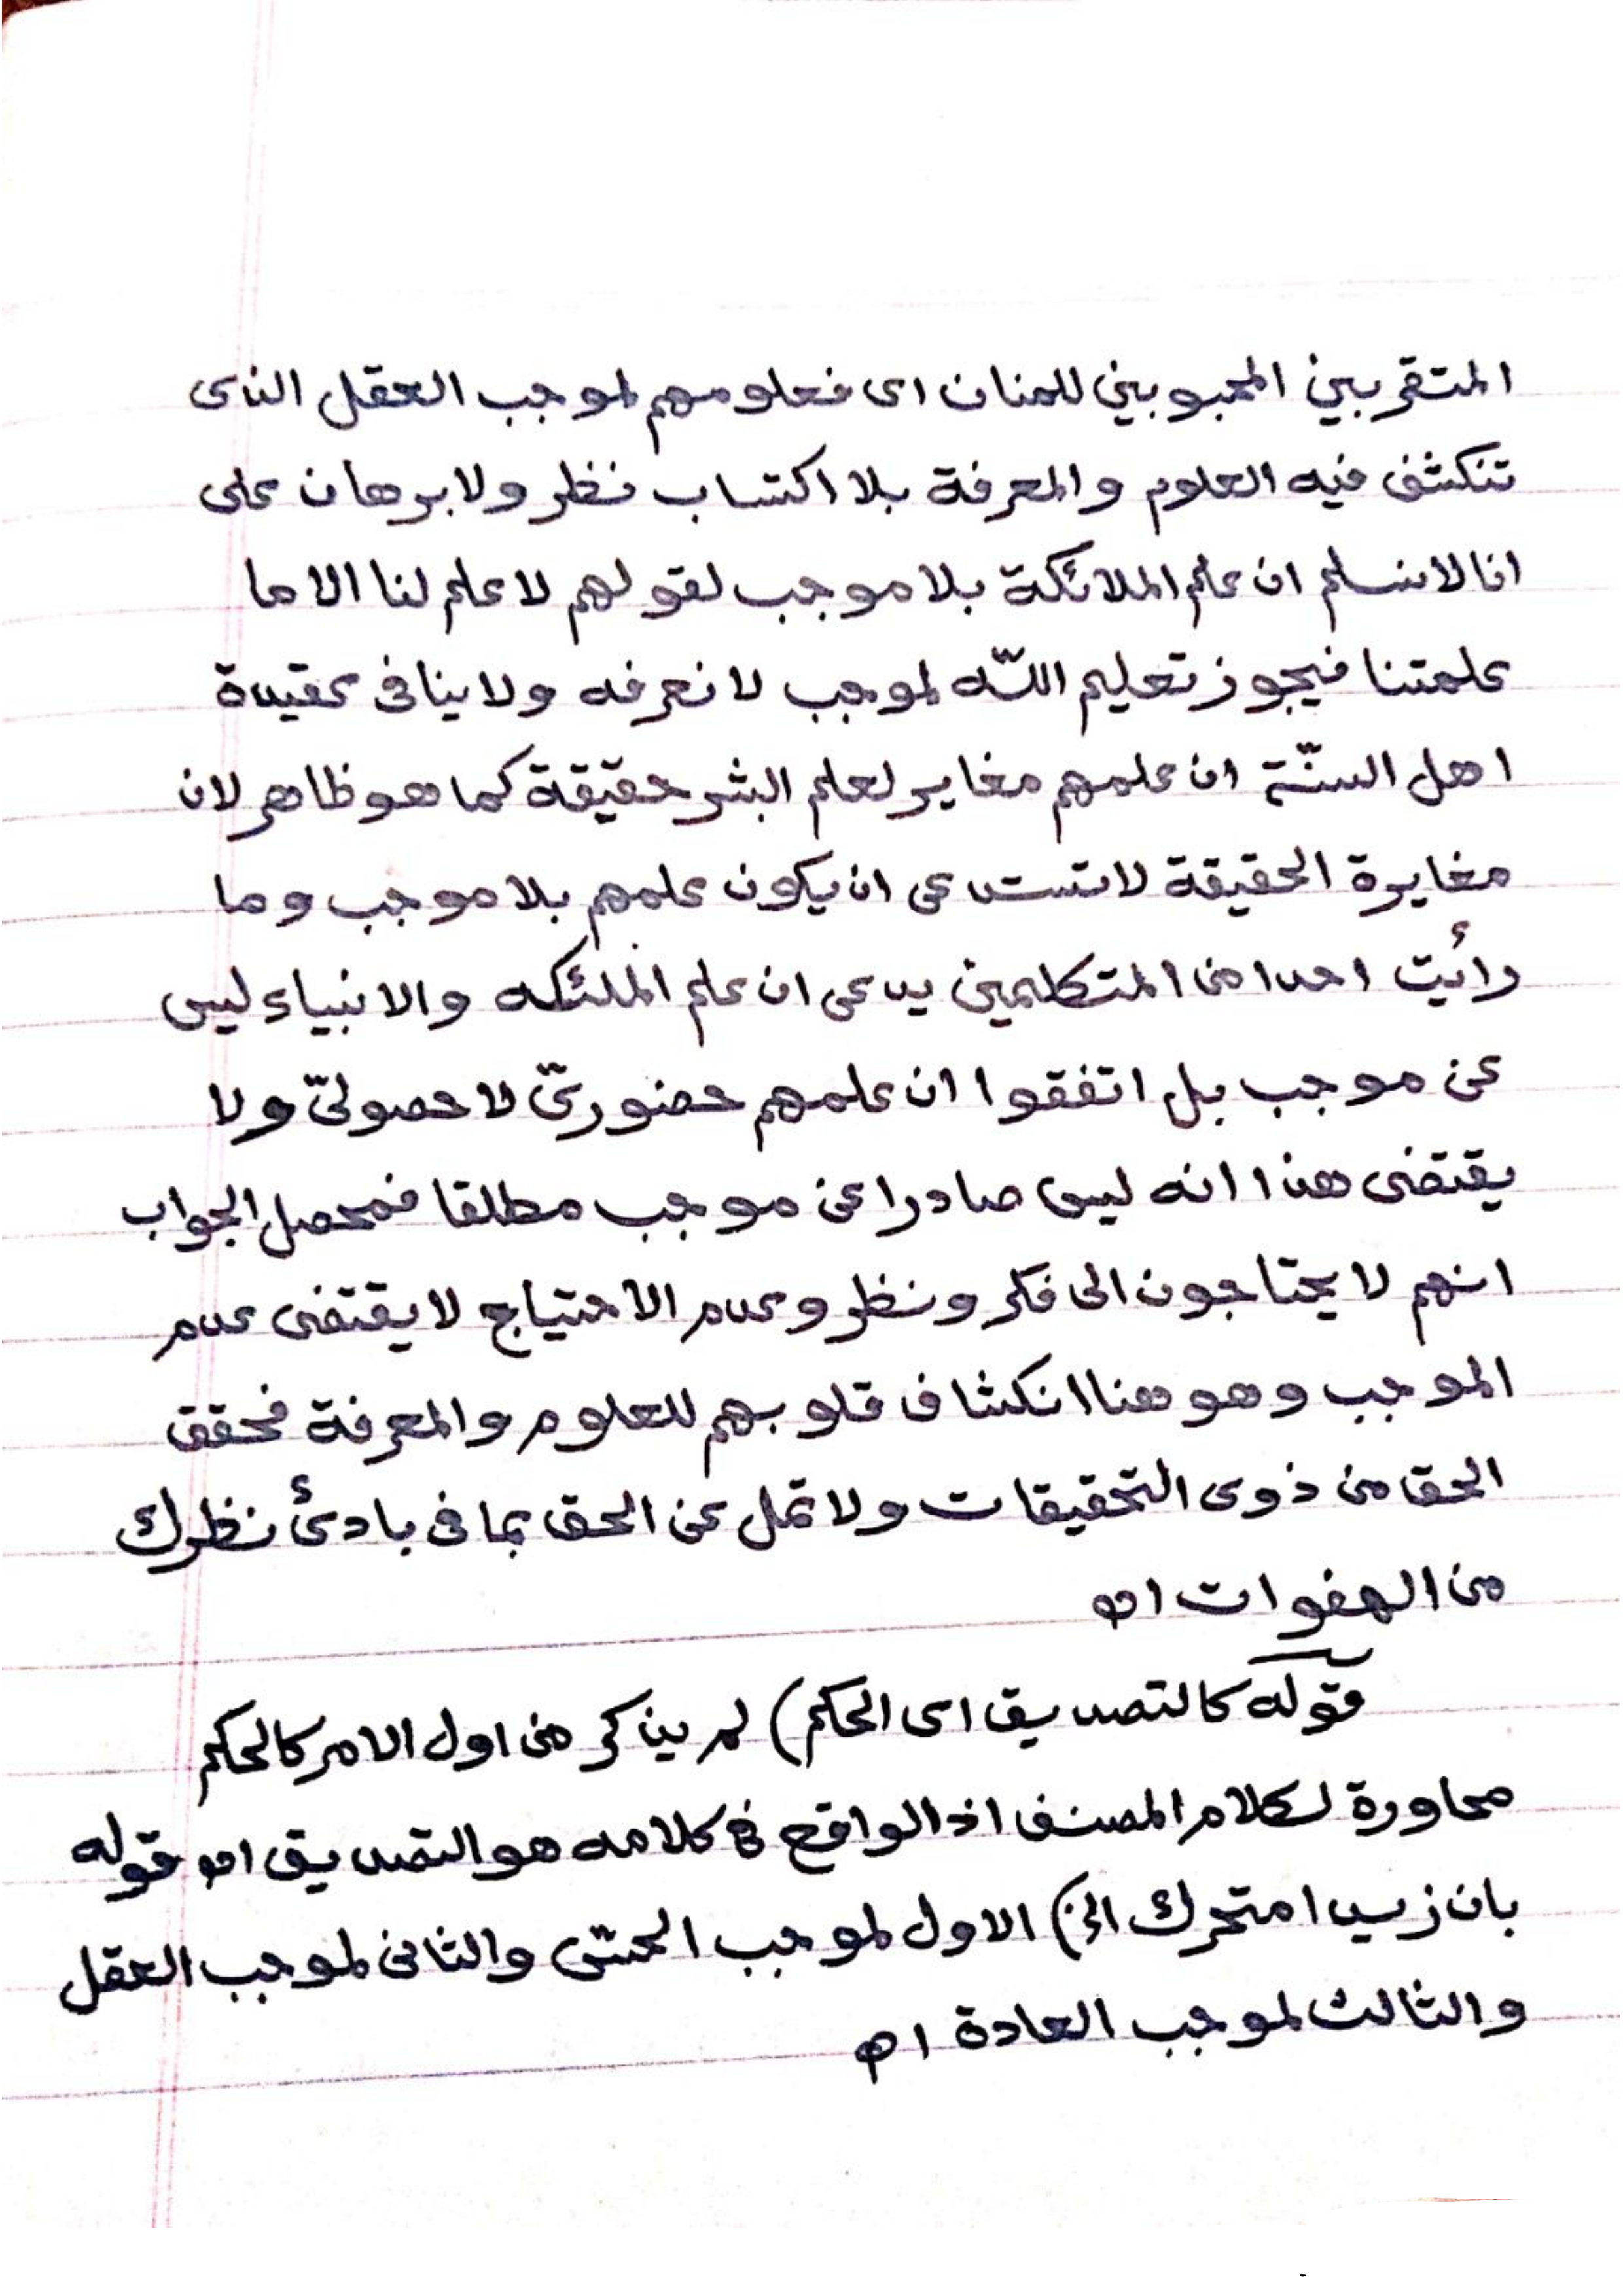 المتقربين المحبوبين للمنان اى فعلومهم لموجب العقل الذى
تنكشف فيه العلوم والمعرفة بلا اكتساب نظر ولا برهان على
انا لا نسلم ان علم الملائكة بلا موجب لقولهم لا علم لنا الا ما
علمتنا فيجوز تعليم اللّه لموجب لا نعرفه ولا ينافى عقيدة
اهل السنّة ان علمهم مغاير لعلم البشر حقيقة كما هو ظاهر لان
مغايرة الحقيقة لا تستدعى ان يكون علمهم بلا موجب وما
رأيت احدا من المتكلمين يدعى ان علم الملئكه والانبياء ليس
عن موجب بل اتفقوا ان علمهم حضورىّ لا حصولىّ ولا
يقتضى هذا انه ليس صادرا عن موجب مطلقا فمحصل الجواب
انهم لا يحتاجون الى فكر ونظر وعدم الاحتياج لا يقتضى عدم
الموجب وهو هنا انكشاف قلوبهم للعلوم والمعرفة فحقق
الحق من ذوى التحقيقات ولا تمل عن الحق بما فى بادئ نظرك
من الهفوات اه
قوله كالتصديق اى الحكم) لم يذكر من اول الامر كالحكم
محاورة لكلام المصنف اذ الواقع فى كلامه هو التصديق اه قوله
بان زيدا متحرك الخ) الاول لموجب الحسّى والثانى لموجب العقل
والثالث لموجب العادة اه